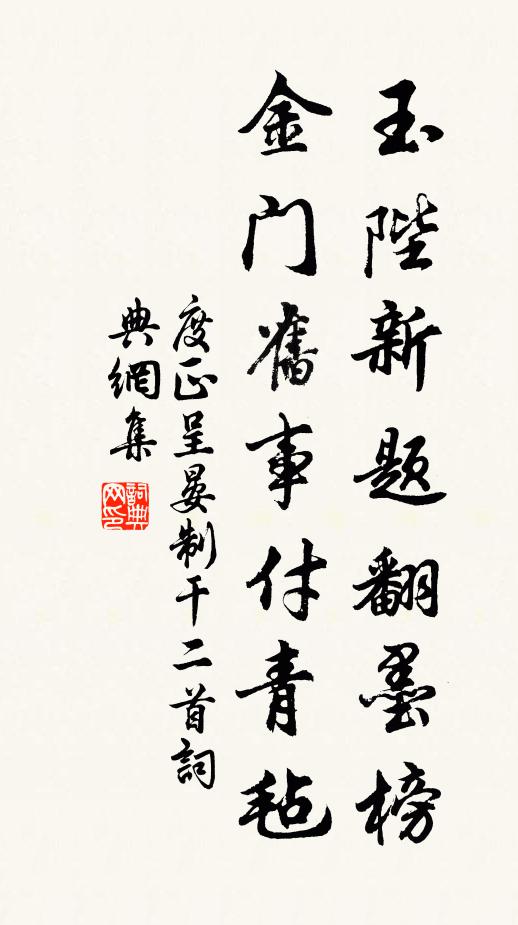 玉陛新题翻墨榜
金门舊事付青毡
度正呈晏制干二首詞
典網集
詞典
网印